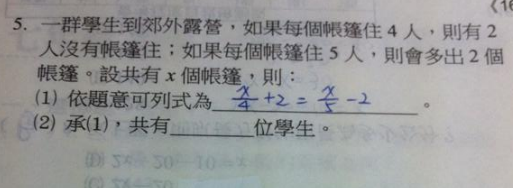 5. 一群學生到郊外露營，如果每個帳篷住 4 人，則有 2
人沒有帳篷住；如果每個帳篷住 5 人，則會多出 2 個
帳篷。設共有 x 個帳篷，則：
(1) 依題意可列式為 x/4 + 2 = x/5 - 2 。
(2) 承(1)，共有______位學生。